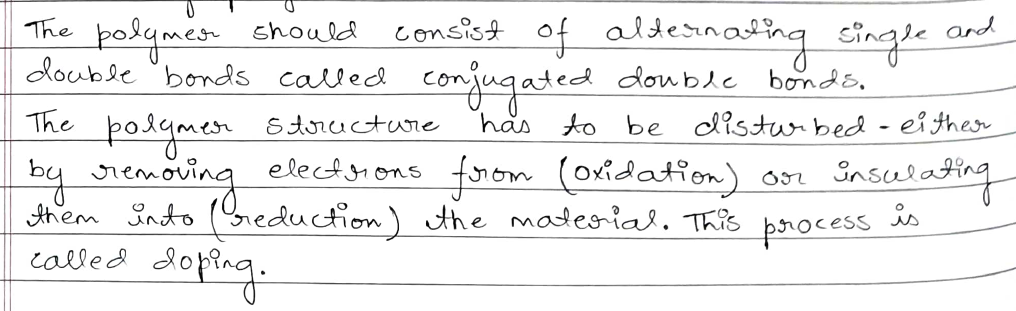 The polymer should consist of alternating single and
double bonds called conjugated double bonds.
The polymer structure has to be disturbed - either
by removing electrons from (oxidation) or insulating
them into (reduction) the material. This process is
called doping.